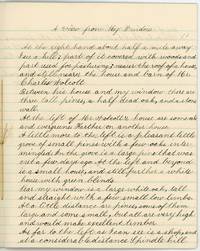 A view from My Window
At the right hand about half a mile away
is a hill; part of it covered with woods and
part used for pasturing; nearer the roof of a house,
and still nearer the house and barn of Mr.
Charles Wolcott.
Between his house and my window there are
three tall pines, a half dead oak, and a stone
wall.
At the left of Mr. Wolcott's house are some oak
and evergreens. Farther on another house.
A little more to the left is a pleasant little
grove of small pines with a few oaks inter-
mingled. In the grove is a large pine that was
cut a few days ago. At the left and beyond
is a small house, and still farther a white
house with green blinds.
Near my window is a large white oak, tall
and straight with a few small low limbs.
At a little distance are pines, some of them
large and some small, that all are very high
and would make excellent timber.
As far to the left as I can see is a shop and
at a considerable distance Spindle hill.